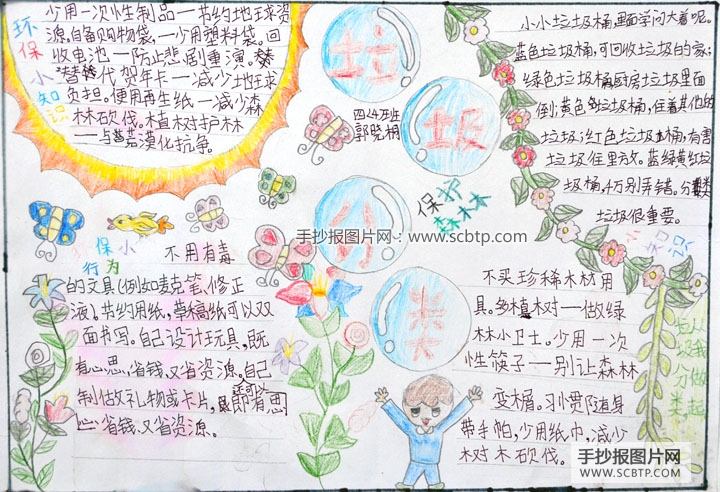 环保小知识
少用一次性制品—节约地球资
源。自备购物袋,一少用塑料袋。回
收电池一防止悲剧重演。
替代贺年卡一减少地球
负担。使用再生纸一减少森
林砍伐。植树护林
——与荒漠化抗争。
垃
圾
分
类
四2班
郭晓桐
小小垃圾桶,里面学问大着呢。
蓝色垃圾桶,可回收垃圾的家;
绿色垃圾桶,厨房垃圾里面
倒;黄色垃圾桶,住着其他的
垃圾;红色垃圾桶,有害
垃圾住里方。蓝绿黄红垃
圾桶,千万别弄错。分类
垃圾很重要。
小知识
保护
森林
手抄报图片网:www.scbtp.com
保小
行为
不用有毒
的文具(例如麦克笔、修正
液)。节约用纸,草稿纸可以双
面书写。自己设计玩具,既
有心思,省钱,又省资源。自己
制做礼物或卡片,还可以
即有思
心,省钱又省资源。
不买珍稀木材用
具。多植树—做绿
林小卫士。少用一次
性筷子——别让森林
变木屑。习惯随身
带手帕,少用纸巾,减少
树木砍伐。
类从我做起
手抄报图片网
WWW.SCBTP.COM